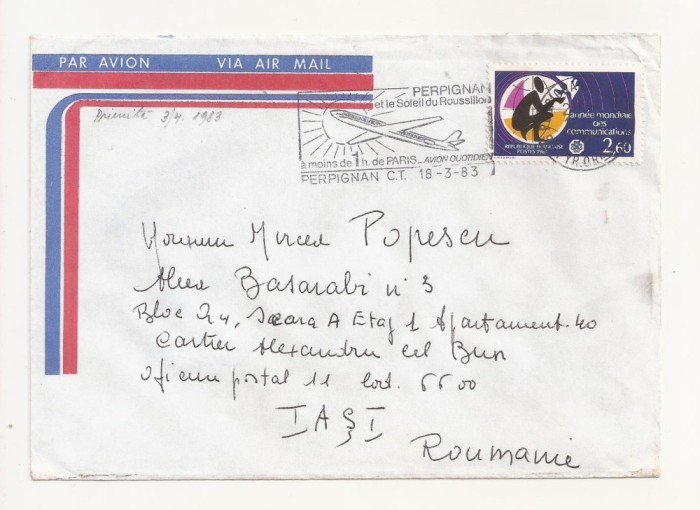 PAR AVION VIA AIR MAIL
3/4. 1983
PERPIGNAN
et le Soleil du Roussillon
à moins de 1 h. de PARIS_ AVION QUOTIDIEN
PERPIGNAN C.T. 18-3-83
année mondiale
des
communications
REPUBLIQUE FRANÇAISE
POSTES 1983
2,60
Monsieur Mircea Popescu
Aleea Basarabi n° 3
Bloc Q4, Scara A Etaj 1 Apartament. 40
Cartier Alexandru cel Bun
Oficiu postal 11 Cod. 6600
IAŞI
Roumanie